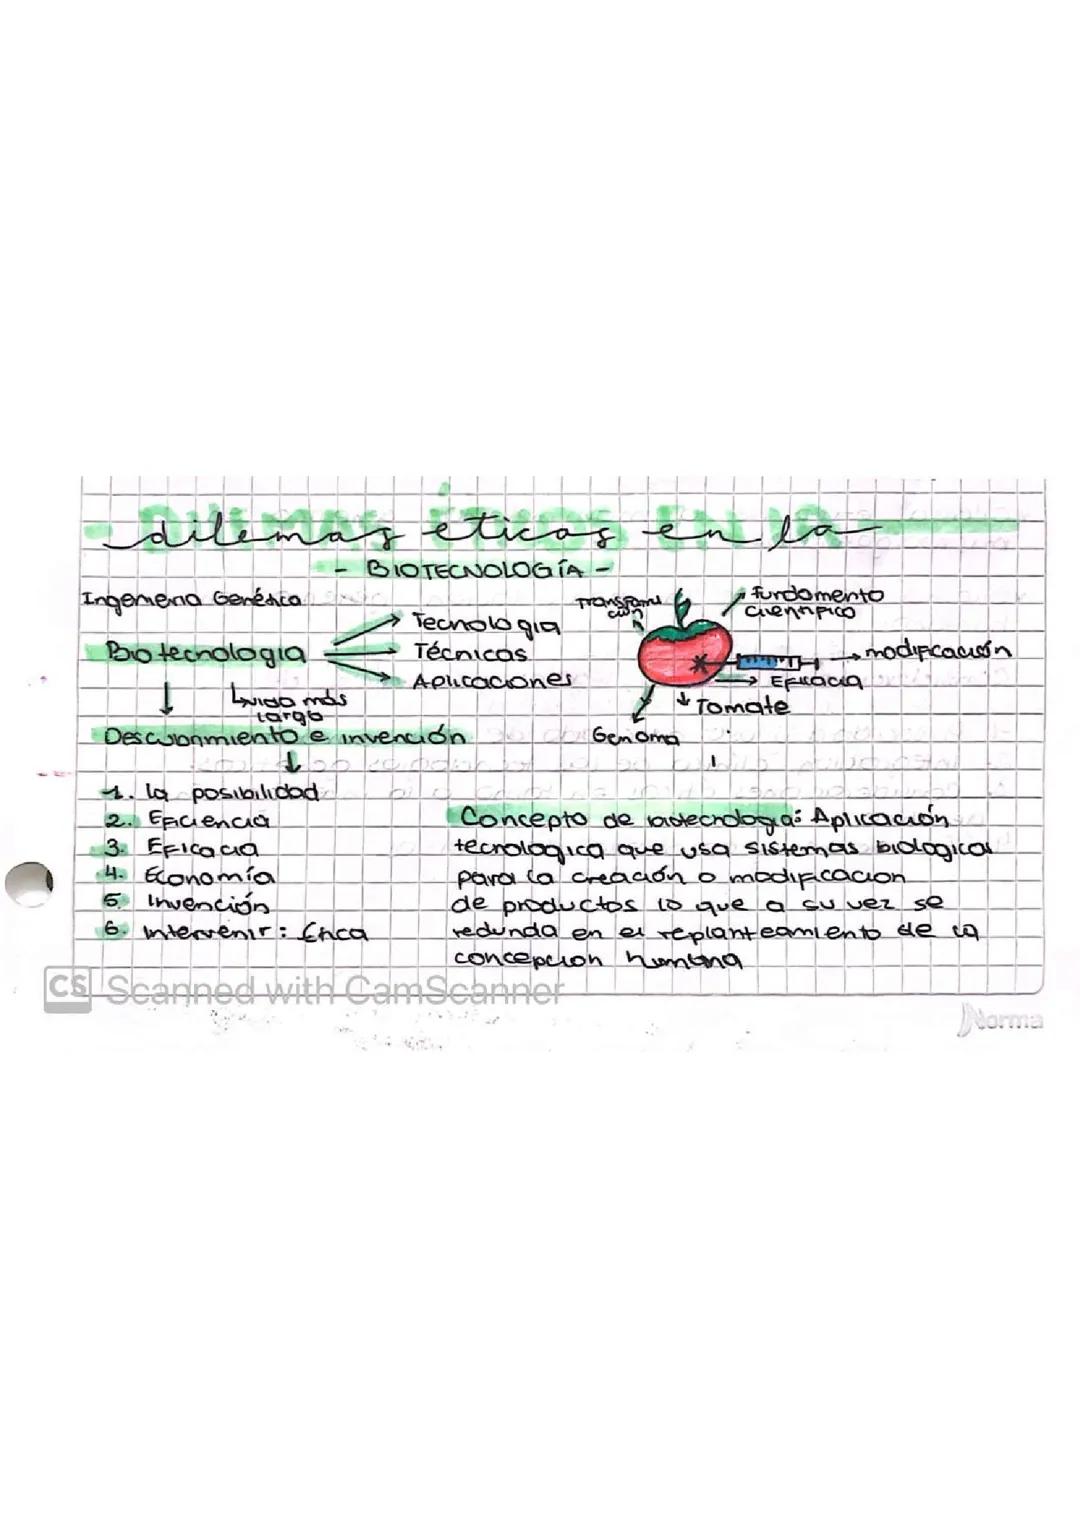 dilemas éticos en la
- BIOTECNOLOGÍA -
Ingenieria Genética
Biotecnologia
Tecnologia
Técnicas
Aplicaciones
vida más
largo
Descubrimiento e invención
1. la posibilidad
2. Eficiencia
3. Eficacia
4. Economía
5. Invención
6. Intervenir: Ética
Transforma
ción
Fundamento
cientifico
modificación
Eficacia
Tomate
Genoma
Concepto de biotecnologia: Aplicación
tecnologica que usa sistemas biologicos
para la creación o modificacion
de productos lo que a su vez se
redunda en el replanteamiento de la
concepcion humana
CS Scanned with CamScanner
Norma